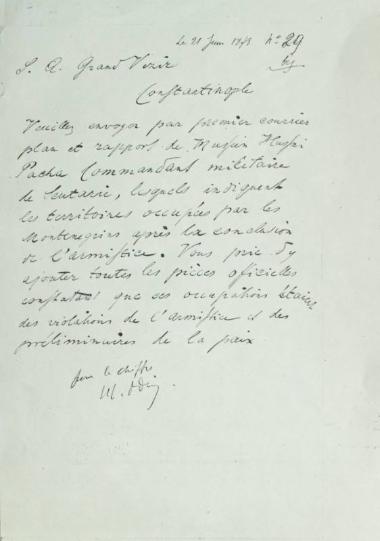 Le 21 Juin 1879 N° 29
S. A. Grand Vezir
Constantinople
Veuillez envoyer par premier courrier
plan et rapport de Husni
Pacha Commandant militaire
de Scutarie, lesquels indiquent
les territoires occupées par les
Montenegrins après la conclusion
de l'armistice. Vous prie d'y
ajouter toutes les pièces officielles
constatant que ces occupations étaient
des violations de l'armistice et des
préliminaires de la paix
pour le chiffre